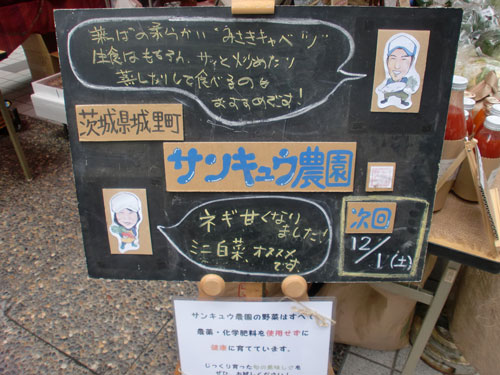 葉っぱの柔らかい"みさきキャベツ"
生食はもちろん、サッと炒めたり
蒸したりして食べるのも
おすすめです!
茨城県城里町
サンキュウ農園
ネギ甘くなり
ました!
ミニ白菜、オススメ
です
次回
12/1(土)
サンキュウ農園の野菜はすべて
農薬・化学肥料を使用せずに
健康に育てています。
じっくり育った旬の美味しさを
ぜひ、お試しください!